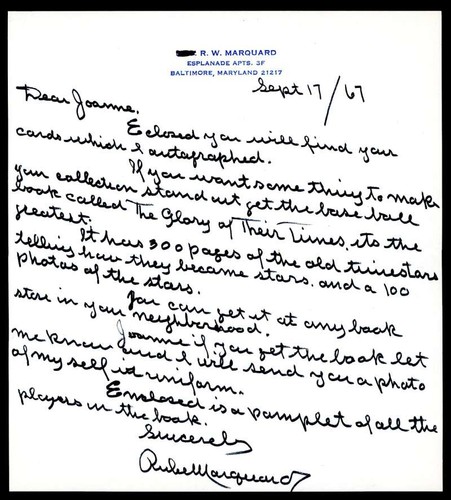 R. W. MARQUARD
ESPLANADE APTS. 3F
BALTIMORE, MARYLAND 21217
Sept 17/67
Dear Joanne,
Eclosed you will find your
cards which I autographed.
If you want some thing to make
your collection stand out get the base ball
book called The Glory of Their Times, its the
greatest.
It has 300 pages of the old time stars
telling how they became stars. and a 100
photos of the stars.
You can get it at any book
store in your neighborhood.
Joanne if you get the book let
me know and I will send you a photo
of my self in uniform.
Enclosed is a pamplet of all the
players in the book.
Sincerely
Rube Marquard